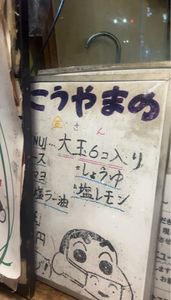 こうやまの
金さん
NU… 大玉6コ入り
ース ・しょうゆ
ヨ ・塩レモン
塩ラー油
円